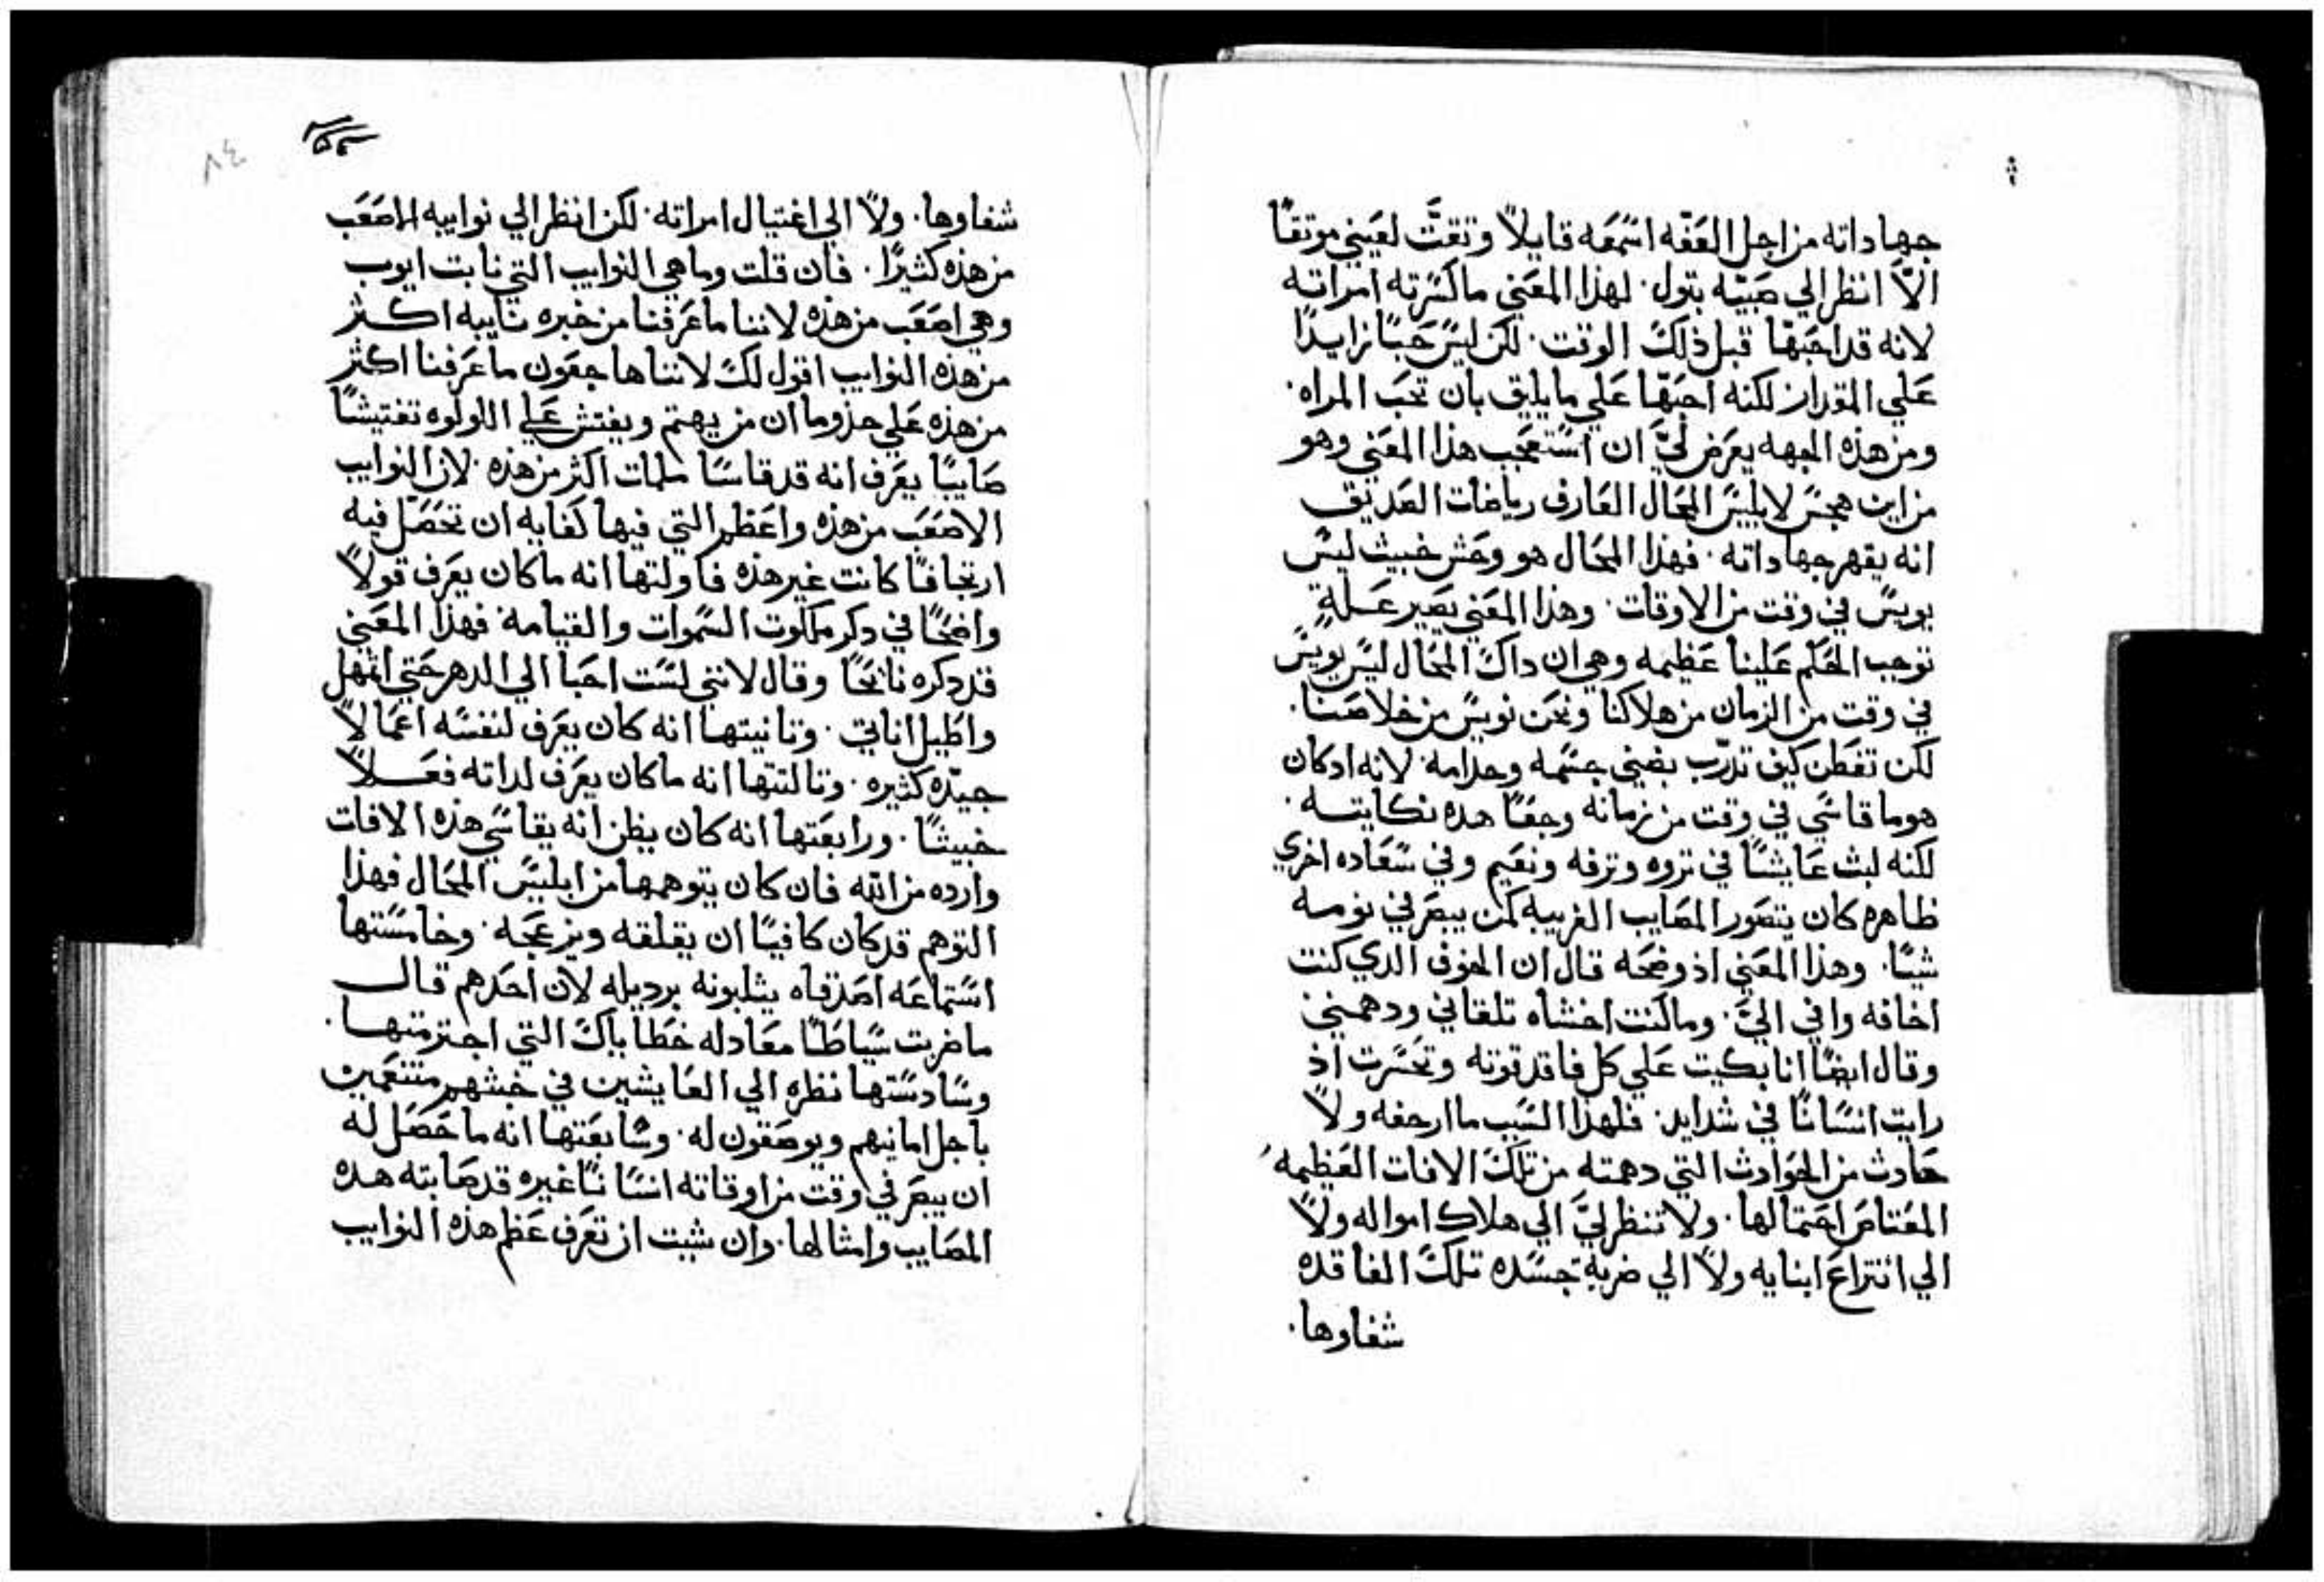 جهاداته من اجل العفه اسمعه قايلاً وتقت لعيني موتقًا
الاّ انظر الي صبيّه بتول. لهذا المعني ما كسرته امراته
لانه قد احبّها قبل ذلك الوقت. لكن ليس حبًا زايدًا
علي المقدار لكنه احبّها علي ما يليق بان تحب المراه.
ومن هذه الجهه يعرض ليَّ ان استعجب هذا المعني وهو
من اين هجس لابليس المحال العارف رياضات الصديق
انه يقهر جهاداته. فهذا المحال هو وحش خبيث ليس
يويس في وقت من الاوقات. وهذا المعني يصير علةٍ
توجب الحكم علينا عظيمه وهي ان داك المحال ليس يويس
في وقت من الزمان من هلاكنا ونحن نويس من خلاصنا.
لكن تفطن كيف تدرّب بضني جسمه وجدامه. لانه ادكان
هو ما قاسي في وقت من زمانه وجعًا هده نكايته.
لكنه لبث عايشًا في تروه وترفه ونعيم وفي سعاده اخري
ظاهره كان يتصور المصايب الغريبه كمن يبصر في نومه
شيًا. وهذا المعني اذ وضحه قال ان الخوف الدي كنت
اخافه وافي اليَّ. وما كنت اخشاه تلقاني ودهمني
وقال ايضًا انا بكيت علي كل فاقد قوته وتحسرت اذ
رايت انسانًا في شدايد. فلهذا السبب ما ارجفه ولاً
حادث من الحوادث التي دهمته من تلك الافات العظيمه
المعتاص احتمالها. ولا تنظر ليَّ الي هلاك امواله ولاً
الي انتزاع ابنايه ولاً الي ضربة جسده تلك الفاقده
شفاوها.
٨٤
شفاوها. ولاً الي اغتيال امراته. لكن انظر الي نوايبه الاصعب
من هذه كثيرًا. فان قلت وما هي النوايب التي نابت ايوب
وهي اصعب من هذه لاننا ما عرفنا من خبره نايبه اكثر
من هذه النوايب اقول لك لاننا هاجعون ما عرفنا اكثر
من هذه علي حذو ما ان من يهتم ويفتش علي اللولوه تفتيشًا
صايبًا يعرف انه قد قاسا ملمات اكثر من هذه. لان النوايب
الاصعب من هذه واعظم التي فيها كفايه ان تحصّل فيه
ارتجافًا كانت غير هذه فاولتها انه ما كان يعرف قولاً
واضحًا في دكر ملكوت السموات والقيامه. فهذا المعني
قد دكره نايحًا وقال لانني لست احيا الي الدهر حتي اتمهل
واطيل اناتي. وتانيتها انه كان يعرف لنفسه اعمالاً
جيّده كثيره. وتالتتها انه ما كان يعرف لداته فعلاً
خبيثًا. ورابعتها انه كان يظن انه يقاسي هذه الافات
وارده من الله فان كان يتوهمها من ابليس المحال فهذا
التوهم قد كان كافيًا ان يقلقه ويزعجه. وخامستها
استماعه اصدقاه يثلبونه برديله لان احدهم قال
ما ضربت سياطًا معادله خطاياك التي اجترمتها.
وسادستها نظره الي العايشين في خبثهم متنعمين
باجل امانيهم ويوصقون له. وسابعتها انه ما حصل له
ان يبصر في وقت من اوقاته انسانًا غيره قد صابته هده
المصايب وامثالها. وان شيت ان تعرف عظم هذه النوايب